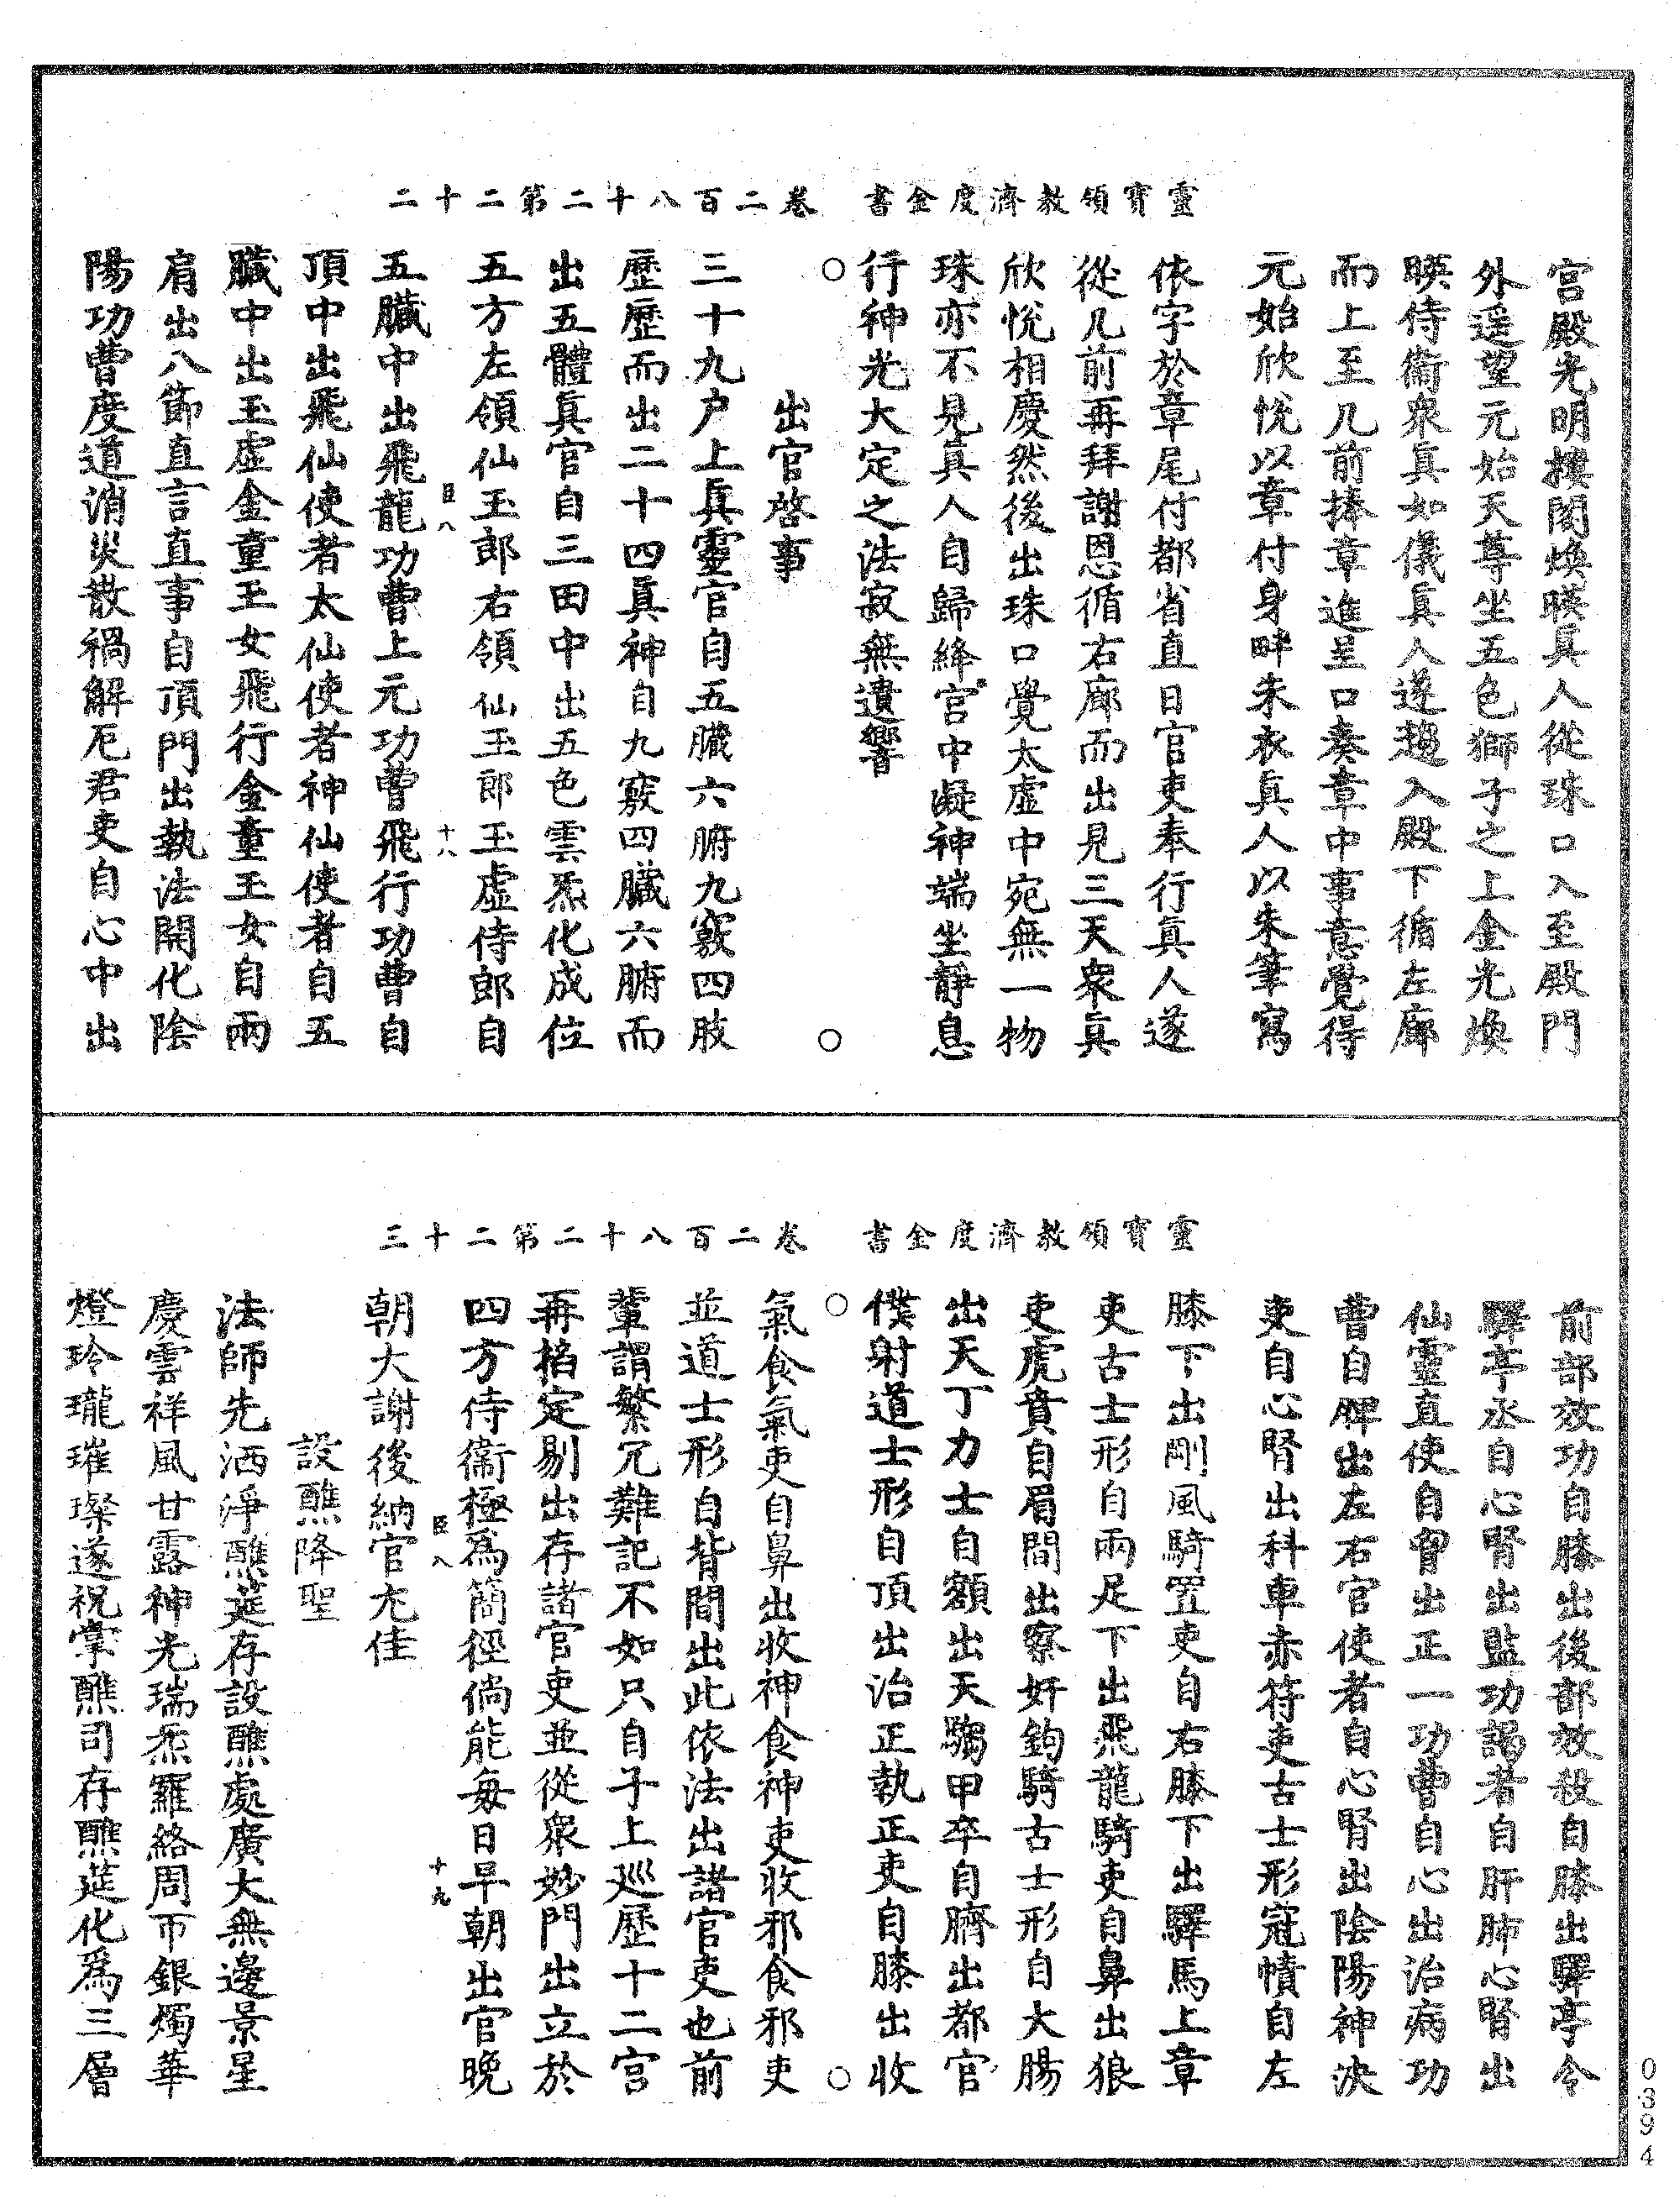 靈寶領教濟度金書　卷二百八十二第二十二
宮殿光明樓閣煥暎真人從珠口入至殿門
外遥望元始天尊坐五色獅子之上金光煥
暎侍衞衆真如儀真人遂趨入殿下循左廊
而上至几前捧章進呈口奏章中事意覺得
元始欣悅以章付身畔朱衣真人以朱筆寫
依字於章尾付都省直日官吏奉行真人遂
從几前再拜謝恩循右廊而出見三天衆真
欣悅相慶然後出珠口覺太虛中宛無一物
珠亦不見真人自歸絳宮中凝神端坐靜息
行神光大定之法寂無遺響
出官啓事
三十九户上真靈官自五臟六腑九竅四肢
歷歷而出二十四真神自九竅四臟六腑而
出五體真官自三田中出五色雲炁化成位
五方左領仙玉郎右領仙玉郎玉虛侍郎自
臣八　十八
五臟中出飛龍功曹上元功曹飛行功曹自
頂中出飛仙使者太仙使者神仙使者自五
臟中出玉虛金童玉女飛行金童玉女自兩
肩出八節直言直事自頂門出執法開化陰
陽功曹度道消災散禍解厄君吏自心中出
靈寶領教濟度金書　卷二百八十二第二十三
前部效功自膝出後部效殺自膝出驛亭令
驛亭丞自心腎出監功謁者自肝肺心腎出
仙靈直使自胷出正一功曹自心出治病功
曹自脾出左右官使者自心腎出陰陽神决
吏自心腎出科車赤符吏古士形冦幘自左
膝下出剛風騎置吏自右膝下出驛馬上章
吏古士形自兩足下出飛龍騎吏自鼻出狼
吏虎賁自眉間出察奸鉤騎古士形自大腸
出天丁力士自額出天騶甲卒自臍出都官
僕射道士形自頂出治正執正吏自膝出收
氣食氣吏自鼻出收神食神吏收邪食邪吏
並道士形自背間出此依法出諸官吏也前
輩謂繁冗難記不如只自子上廵歷十二宮
再掐定剔出存諸官吏並從衆妙門出立於
四方侍衞極爲簡徑倘能每日早朝出官晩
臣八　十九
朝大謝後納官尤佳
設醮降聖
法師先洒淨醮莚存設醮處廣大無邊景星
慶雲祥風甘露神光瑞炁羅絡周帀銀燭華
燈玲瓏璀璨遂祝掌醮司存醮莚化爲三層
0394